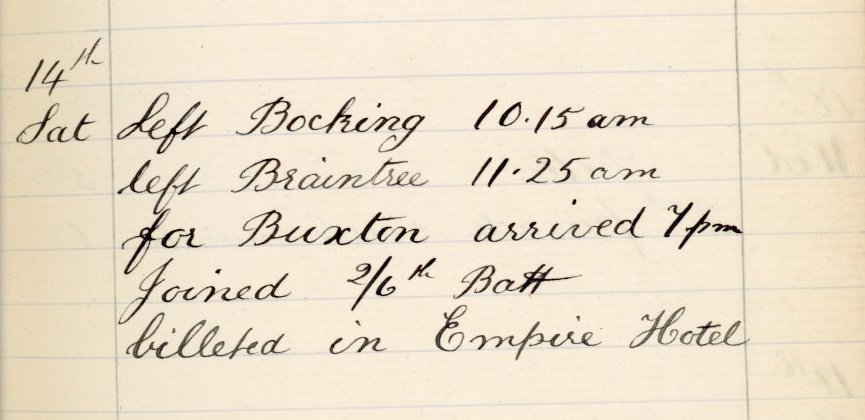 14th
Sat Left Bocking 10.15 am
left Braintree 11.25 am
for Buxton arrived 7pm
Joined 2/6th Batt
billeted in Empire Hotel